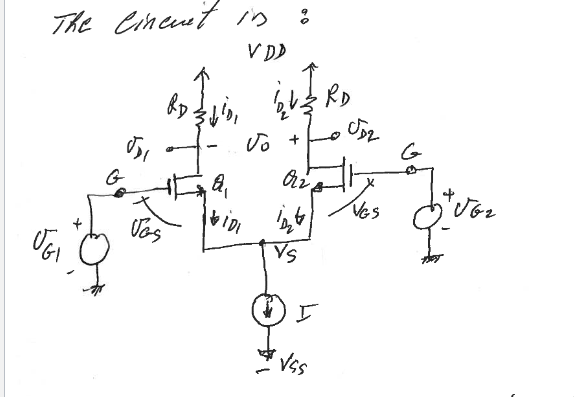 The Circuit is :
VDD
RD iD1 iD2 RD
vD1 - vo + vD2
G Q1 Q2 G
+ vG1 - vGS iD1 iD2 VGS + vG2 -
VS
I
- VSS